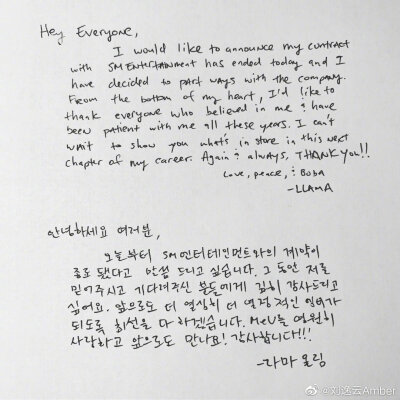 Hey Everyone,
I would like to announce my contract
with SM ENTERTAINMENT has ended today and I
have decided to part ways with the company.
From the bottom of my heart, I'd like to
thank everyone who believed in me & have
been patient with me all these years. I can't
wait to show you what's in store in this next
chapter of my career. Again & always, THANK YOU!!
Love, peace, & Boba
-LLAMA
안녕하세요 여러분,
오늘부터 SM엔터테인먼트와의 계약이
종료 됐다고 말씀 드리고 싶습니다. 그 동안 저를
믿어주시고 기다려주신 분들에게 깊히 감사드리고
싶어요. 앞으로도 더 열심히 더 열정적인 엠버가
되도록 최선을 다 하겠습니다. MeU들 영원히
사랑하고 앞으로도 만나요! 감사합니다!!!
-라마 올림
@刘逸云Amber